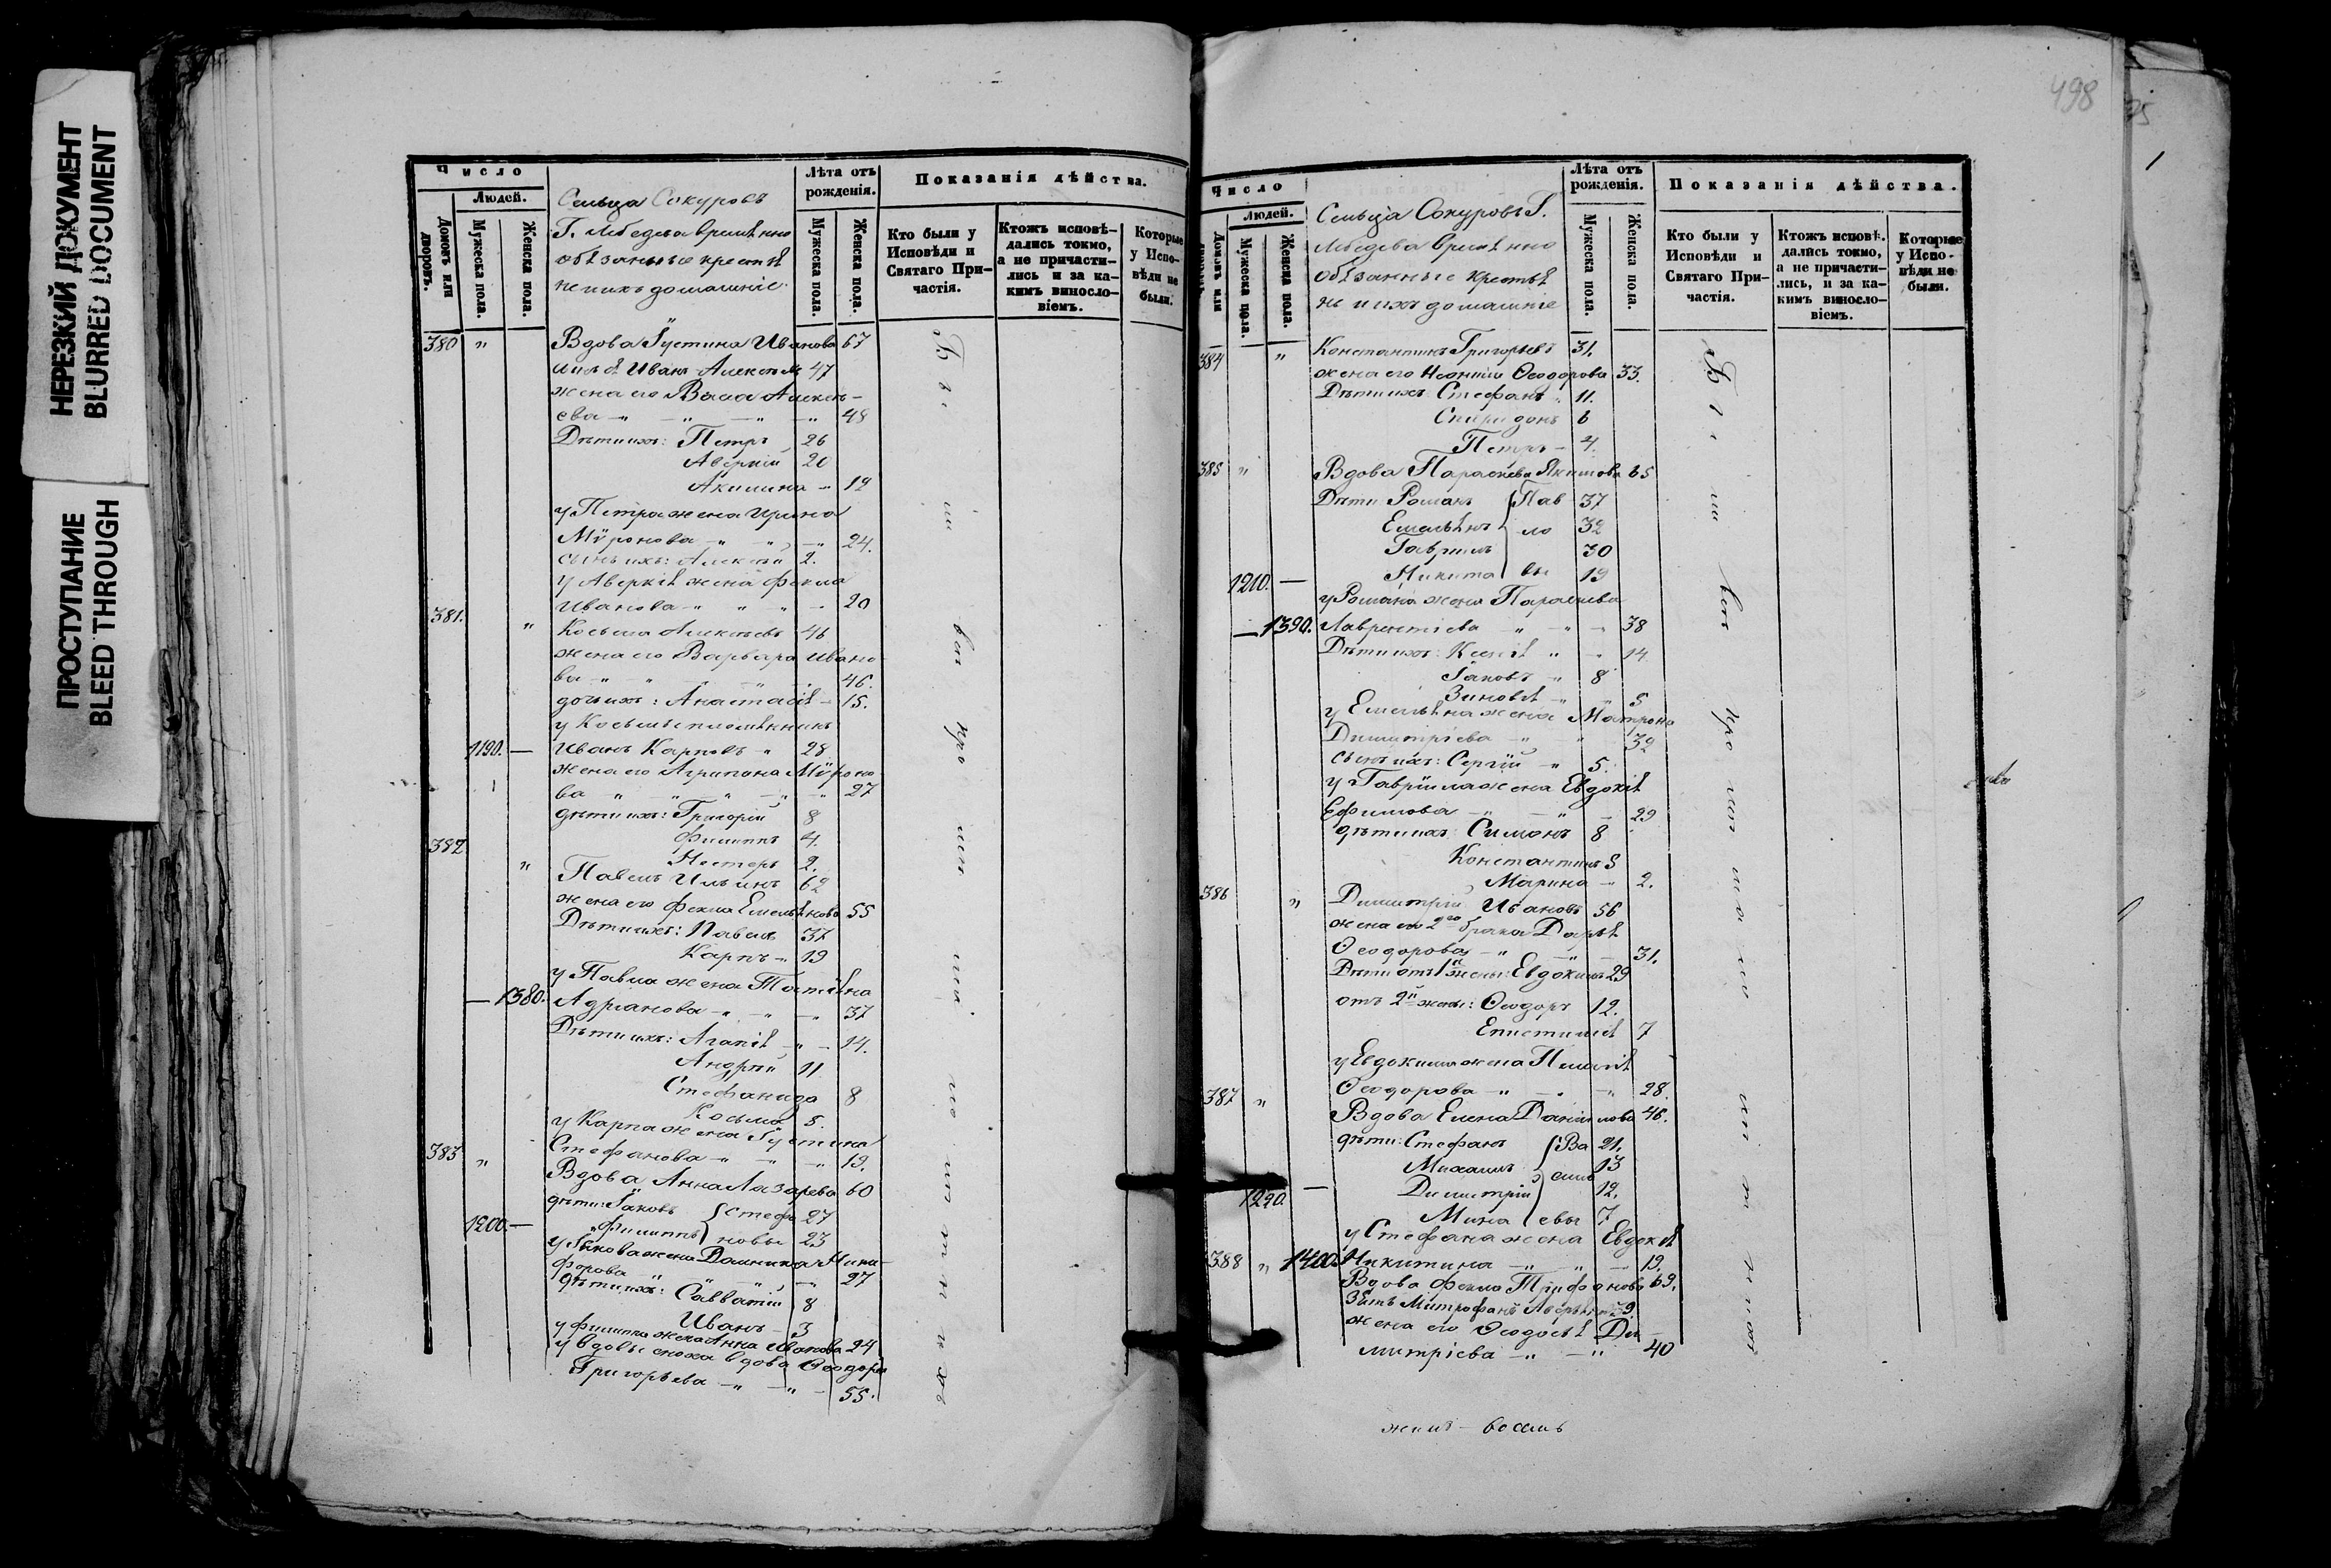 НЕРЕЗКИЙ ДОКУМЕНТ
BLURRED DOCUMENT
ПРОСТУПАНИЕ
BLEED THROUGH
Число
Людей.
Домовъ или дворовъ.
Мужеска пола.
Женска пола.
Сельца Сокуровъ
Г. Лебедева временно
обязанные крестья
не и ихъ домашніе
Лѣта отъ рожденія.
Мужеска пола.
Женска пола.
Показанія дѣйства.
Кто были у Исповѣди и Святаго При-
частія.
Ктожъ исповѣ-
дались токмо,
а не причасти-
лись и за ка-
кимъ виносло-
віемъ.
Которые
у Испо-
вѣди не
были.
380 " Вдова Іустина Иванова 67
Иванъ Алексѣевъ 47
жена его Васса Алексѣ-
ева 48
Дѣти ихъ: Петръ 26
Аверкій 20
Акилина 12
у Петра жена Ирина
Мѵронова 24.
сынъ ихъ: Алексѣй 2.
у Аверкія жена Фекла
Иванова 20
381. " Косьма Алексѣевъ 46
жена его Варвара Ивано-
ва 46.
дочь ихъ: Анастасія 15.
у Косьмы племянникъ
1190. — Иванъ Карповъ 28
жена его Агрипина Мѵроно-
ва 27
дѣти ихъ: Григорій 8
Филиппъ 4.
Несторъ 2.
382 " Павелъ Ильинъ 62
жена его Фекла Емельянова 55
Дѣти ихъ: Павелъ 37
Карпъ 19
у Павла жена Татіяна
— 1380. Адріанова 37
Дѣти ихъ: Агапія 14.
Андрей 11
Стефанида 8
Косьма 5.
у Карпа жена Іустина
Стефанова 19.
383 " Вдова Анна Лазарева 60
дѣти: Іаковъ Стефа 27
1200. — Филиппъ новы 23
у Іакова жена Домника Ники-
форова 27
дѣти ихъ: Савватій 8
Иванъ 3
у Филиппа жена Анна Иванова 24
у вдовы сноха вдова Ѳеодора
Григорьева 55.
498
Число
Людей.
Домовъ или
Мужеска пола.
Женска пола.
Сельца Сокуровъ Г.
Лебедева временно
обязанные крестья
не и ихъ домашніе
Лѣта отъ рожденія.
Мужеска пола.
Женска пола.
Показанія дѣйства.
Кто были у
Исповѣди и
Святаго При-
частія.
Ктожъ исповѣ-
дались токмо,
а не причасти-
лись, и за ка-
кимъ виносло-
віемъ.
Которые
у Испо-
вѣди не
были.
384 " Константинъ Григорьевъ 31.
жена его Ѳеодорова 33.
Дѣти ихъ: Стефанъ 11.
Спиридонъ 6
Петръ 4.
385 " Вдова Параскева Якимова 65
Дѣти: Романъ Пав 37
Емельянъ ло 32
Гавріилъ 30
1210. — Никита вы 19
у Романа жена Параскева
— 1390. Лаврентіева 38
Дѣти ихъ: Ксенія 14
Іаковъ 8
Зиновія 5
у Емельяна жена Матрона
Димитріева 32
сынъ ихъ: Сергій 5.
у Гавріила жена Евдокія
Ефимова 29
дѣти ихъ: Симонъ 8
Константинъ 5
Марина 2.
386 " Димитрій Ивановъ 56
жена его 2го брака Дарья
Ѳеодорова 31.
Дѣти отъ 1й жены: Евдокимъ 29
отъ 2й жены: Ѳеодоръ 12.
Епистимія 7
у Евдокима жена Пелагія
Ѳеодорова 28.
387 " Вдова Елена Даніилова 46.
дѣти: Стефанъ Ва 21.
Михаилъ 13
1220. — Димитрій силь 12.
Мина евы 7
у Стефана жена Евдокія
1400. Никитина 19.
388 " Вдова Фекла Трифонова 69.
Зять Митрофанъ 39
жена его Ѳеодосья Ди-
митріева 40